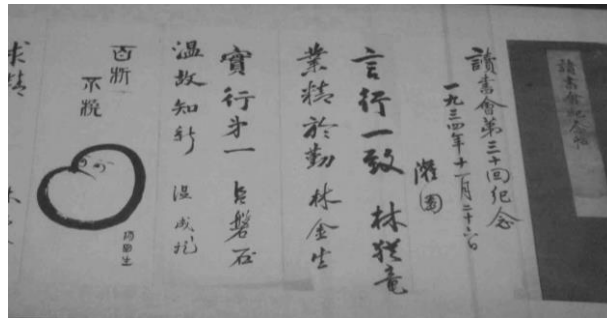 讀書會紀念
讀書會第三十回紀念
一九三四年十一月二十六日
灌園
言行一致 林猶竜
業精於勤 林金生
實行㐧一 呂磐石
溫故知新 溫成
百折
不撓
求精